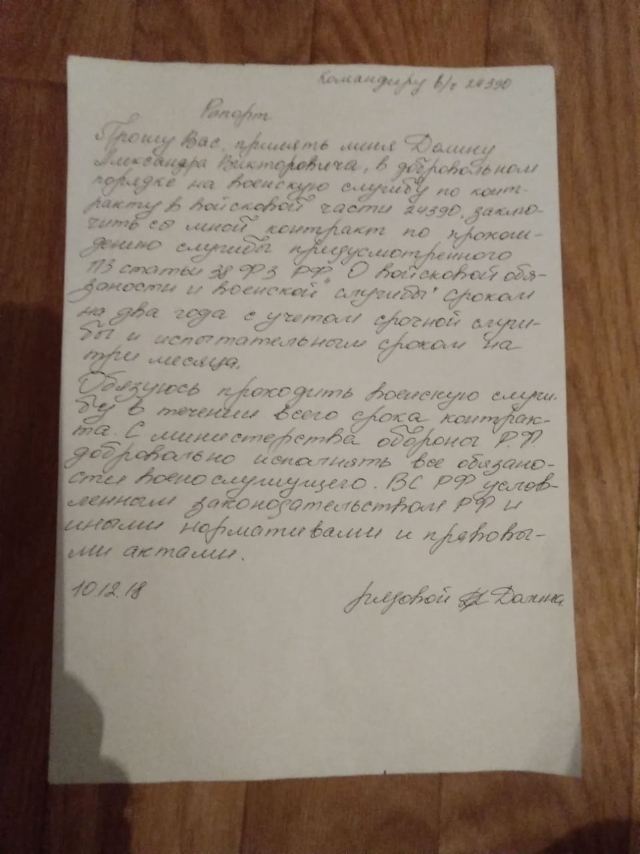 Командиру в/ч 24390
Рапорт
Прошу Вас, принять меня Долину
Александра Викторовича, в добровольном
порядке на военскую службу по конт-
ракту в войсковой части 24390, заклю-
чить со мной контракт по прохож-
дению службы придусмотренного
П3 статьи 38 ФЗ РФ "О войсковой обя-
заности и военской службы" сроком
на два года с учетом срочной служ-
бы и испытательным сроком на
три месяца.
Обязуюсь проходить военскую служ-
бу в течении всего срока контрак-
та. С министерства обороны РФ
добровально исполнять все обязано-
сти военослужущего. ВС РФ услов-
ленным законодательством РФ и
иными нормативами и правовы-
ми актами.
10.12.18 рядовой Долина